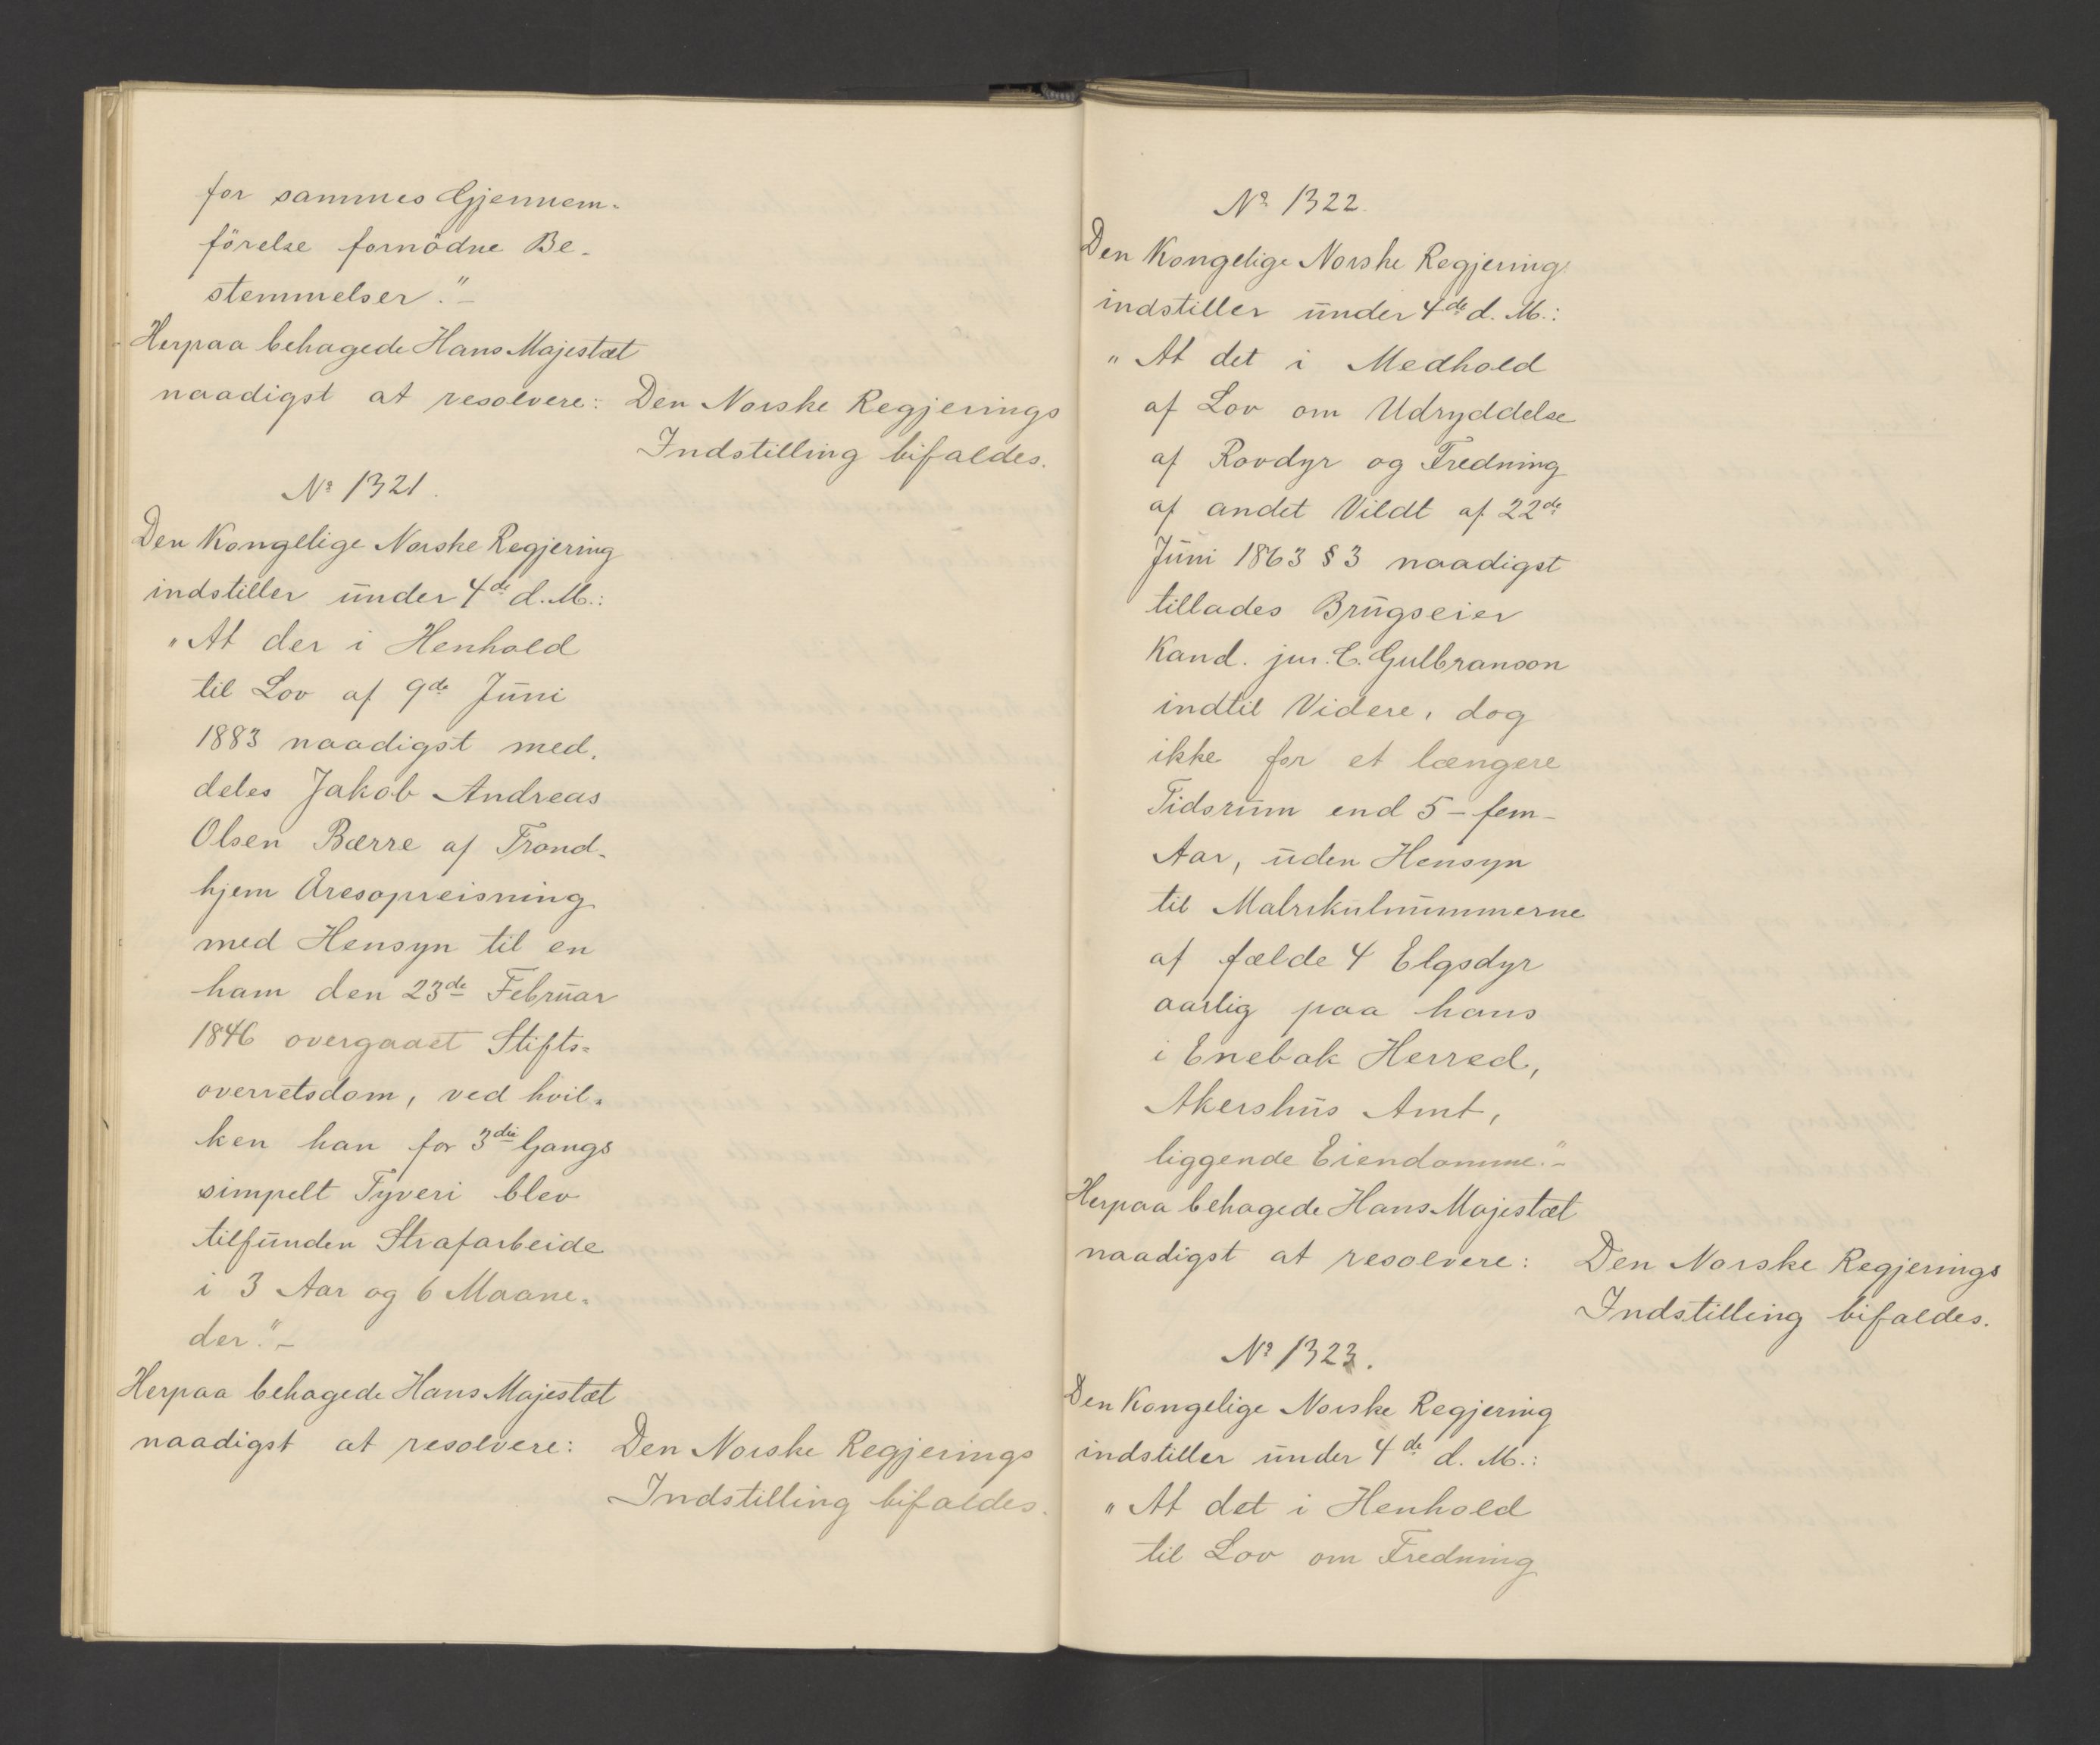 for sammes Gjennem-
förelse fornödne Be-
stemmelser."-
Herpaa behagede Hans Majestæt
naadigst at resolvere: Den Norske Regjerings
Indstilling bifaldes.
No 1321.
Den Kongelige Norske Regjering
indstiller under 4de d. M.:
"At der i Henhold
til Lov af 9de Juni
1883 naadigst med-
deles Jakob Andreas
Olsen Bærre af Trond-
hjem Æresopreisning
med Hensyn til en
ham den 23de Februar
1846 overgaaet Stifts-
overretsdom, ved hvil-
ken han for 3die Gangs
simpelt Tyveri blev
tilfunden Strafarbeide
i 3 Aar og 6 Maane-
der."-
Herpaa behagede Hans Majestæt
naadigst at resolvere: Den Norske Regjerings
Indstilling bifaldes.
No 1322.
Den Kongelige Norske Regjering
indstiller under 4de d. M.:
"At det i Medhold
af Lov om Udryddelse
af Rovdyr og Fredning
af andet Vildt af 22de
Juni 1863 § 3 naadigst
tillades Brugseier
Kand. jur. C. Gulbranson
indtil Videre, dog
ikke for et længere
Tidsrum end 5 - fem -
Aar, uden Hensyn
til Matrikulnummerne
af fælde 4 Elgsdyr
aarlig paa hans
i Enebak Herred,
Akershus Amt,
liggende Eiendomme."-
Herpaa behagede Hans Majestæt
naadigst at resolvere: Den Norske Regjerings
Indstilling bifaldes.
No 1323.
Den Kongelige Norske Regjering
indstiller under 4de d. M.:
"At det i Henhold
til Lov om Fredning